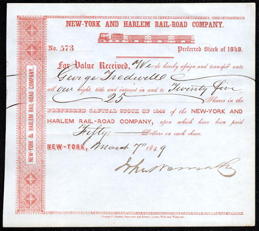 NEW-YORK AND HARLEM RAIL-ROAD COMPANY.
No. 573 Preferred Stock of 1848.
For Value Received, We do hereby assign and transfer unto
George Tredwell
all our right, title and interest in and to Twenty Five
25 Shares in the
PREFERRED CAPITAL STOCK OF 1848 of the NEW-YORK AND
HARLEM RAIL-ROAD COMPANY, upon which have been paid
Fifty Dollars on each share.
NEW-YORK, March 7th 1849
NEW-YORK & HARLEM RAIL-ROAD COMPANY.